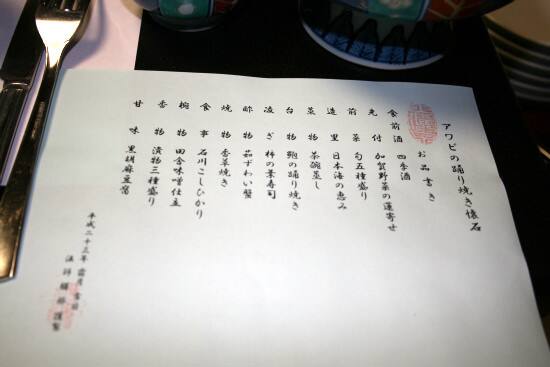 アワビの踊り焼き懐石
お品書き
食前酒 四季酒
先付 加賀野菜の蓮寄せ
前菜 旬五種盛り
造里 日本海の恵み
蒸物 茶碗蒸し
台物 鮑の踊り焼き
凌ぎ 柿の葉寿司
酢物 茹ずわい蟹
焼物 香草焼き
食事 石川こしひかり
椀物 田舎味噌仕立
香物 漬物三種盛り
甘味 黒胡麻豆腐
平成二十三年 霜月 吉日
法師 謹製